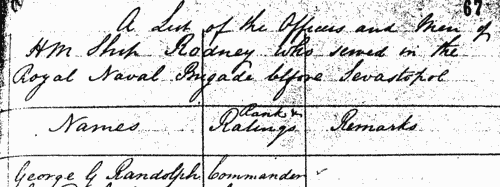 67
A List of the Officers and Men of
HM Ship Rodney who served in the
Royal Naval Brigade before Sevastopol
Names Rank & Ratings Remarks
George G Randolph Commander